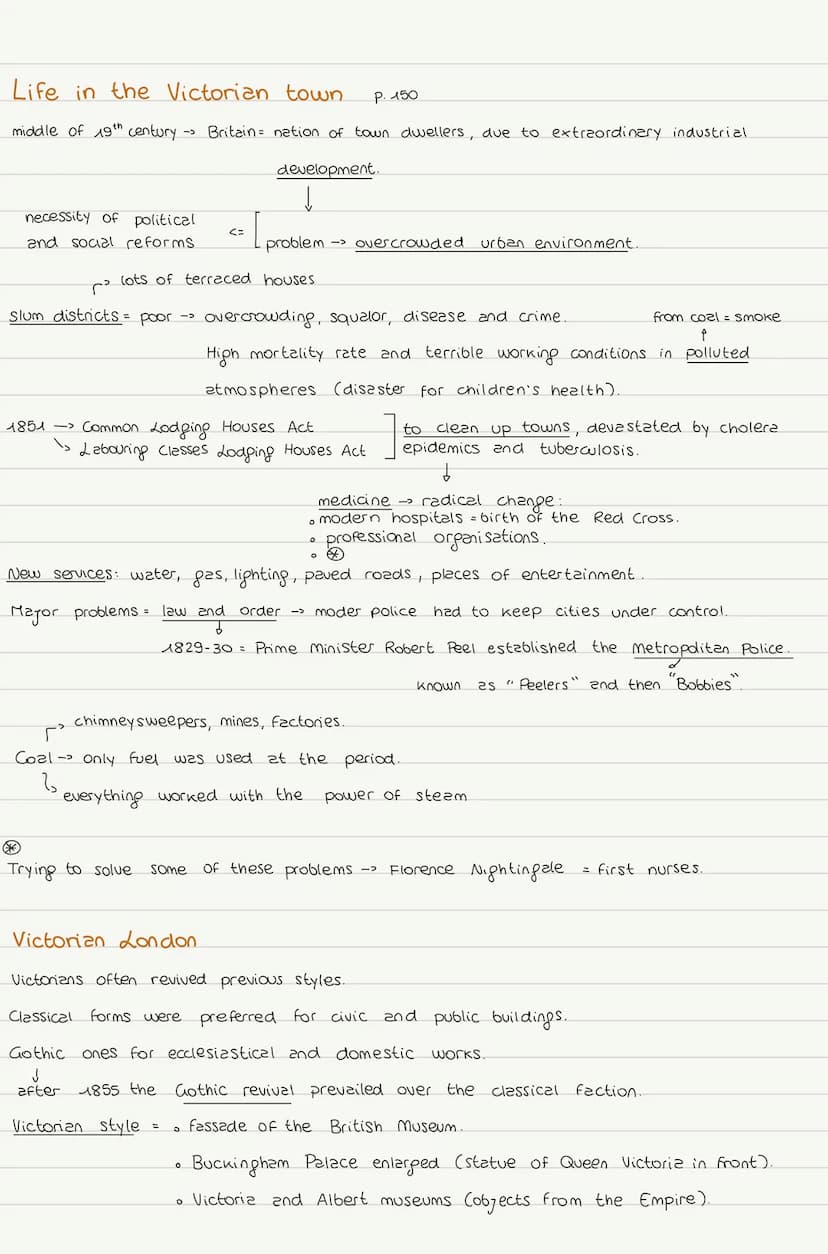 Life in the Victorian town p. 150
middle of 19th century -> Britain = nation of town dwellers, due to extraordinary industrial
development.
↓
necessity of political
and social reforms <= [ problem -> overcrowded urban environment.
↱ lots of terraced houses
Slum districts = poor -> overcrowding, squalor, disease and crime. from coal = smoke
↑
High mortality rate and terrible working conditions in polluted
atmospheres (disaster for children's health).
1851 -> Common Lodging Houses Act ] to clean up towns, devastated by cholera
↘ Labouring Classes Lodging Houses Act epidemics and tuberculosis.
↓
medicine -> radical change:
• modern hospitals = birth of the Red Cross.
• professional organisations.
• ⊛
New services: water, gas, lighting, paved roads, places of entertainment.
Major problems = law and order -> moder police had to keep cities under control.
↓
1829-30 = Prime Minister Robert Peel established the Metropolitan Police.
known as "Peelers" and then "Bobbies".
↱ chimneysweepers, mines, factories.
Coal -> only fuel was used at the period.
↳ everything worked with the power of steam
⊛
Trying to solve some of these problems -> Florence Nightingale = first nurses.
Victorian London
Victorians often revived previous styles.
Classical forms were preferred for civic and public buildings.
Gothic ones for ecclesiastical and domestic works.
↓
after 1855 the Gothic revival prevailed over the classical faction.
Victorian style = • fassade of the British Museum.
• Buckingham Palace enlarged (statue of Queen Victoria in front).
• Victoria and Albert museums (objects from the Empire).